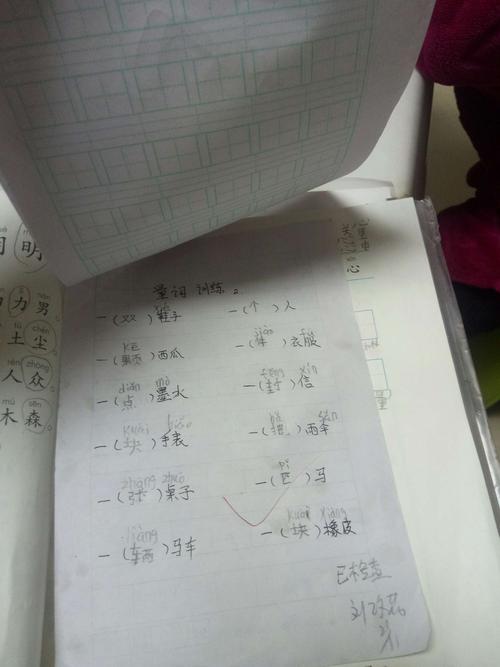 量词 训练。
一(双)鞋子 一(个)人
kē
一(颗)西瓜 一(件)衣服
diǎn mò fēng xìn
一(点)墨水 一(封)信
kuài biǎo
一(块)手表 一(把)雨伞
zhāng zhuō pǐ
一(张)桌子 一(匹)马
liàng kuài xiàng
一(辆)马车 一(块)橡皮
已检查
明
力 男
nán
土 尘
tǔ chén
人 众
rén zhòng
木 森
mù sēn
心
量